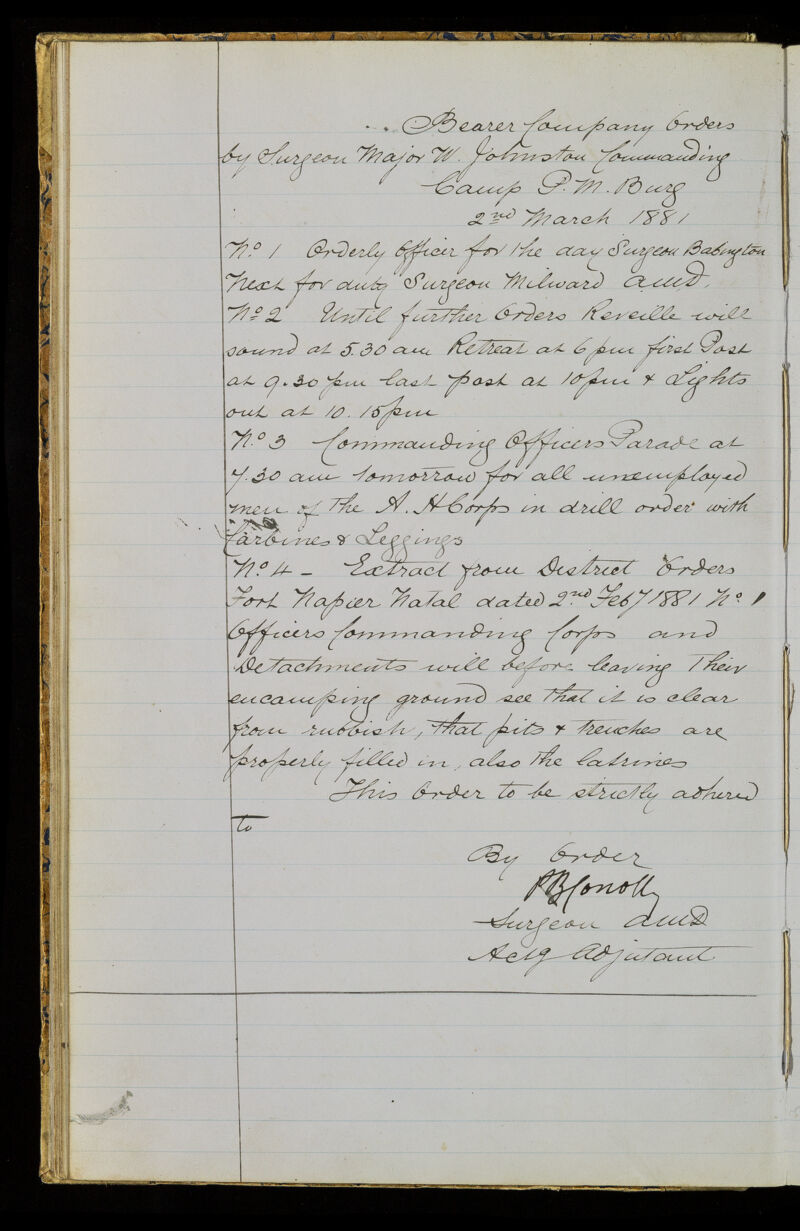 Bearer Company Orders
by Surgeon Major W. Johnston Commanding
Camp P. M. Burg
2nd March 1881
No. 1 Orderly Officer for the day Surgeon Babington
Next for duty Surgeon Milward A.M.D.
No. 2 Until further Orders Reveille will
sound at 5.30 am Retreat at 6 pm first Post
at 9.30 pm last post at 10 pm & Lights
out at 10.15 pm
No. 3 Commanding Officers Parade at
7.30 am tomorrow for all unemployed
men of the A. H Corps in drill order with
Carbines & Leggings
No. 4 - Extract from District Orders
Fort Napier Natal dated 2nd Feby 1881 No. 1
Officers Commanding Corps and
Detachments will before leaving Their
encamping ground see that it is clear
from rubbish, that pits & trenches are
properly filled in, also the latrines
This Order to be strictly adhered
to
By Order
P B Conolly
Surgeon AMD
Actg Adjutant